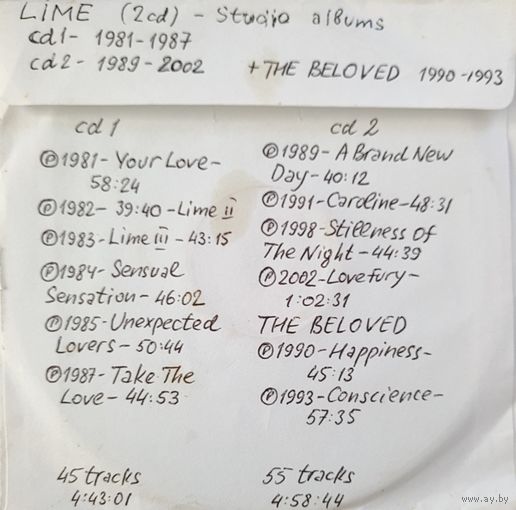 LIME (2cd) - Studio albums
cd1- 1981-1987
cd2- 1989-2002 + THE BELOVED 1990-1993
cd 1
℗1981-Your Love-
58:24
℗1982- 39:40-Lime II
℗1983-Lime III-43:15
℗1984-Sensual
Sensation-46:02
℗1985-Unexpected
Lovers-50:44
℗1987-Take The
Love-44:53
45 tracks
4:43:01
cd 2
℗1989-A Brand New
Day-40:12
℗1991-Caroline-48:31
℗1998-Stillness Of
The Night-44:39
℗2002-Lovefury-
1:02:31
THE BELOVED
℗1990-Happiness-
45:13
℗1993-Conscience-
57:35
55 tracks
4:58:44
www.ay.by